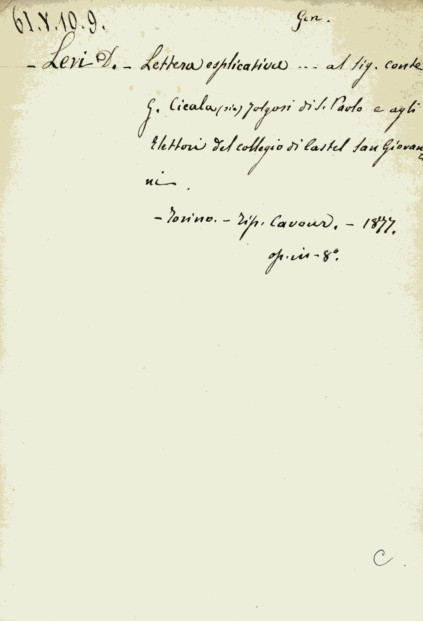 61.V.10.9.
Gen.
- Levi D. - Lettera esplicativa ... al sig. conte
G. Cicala (sic) Folgosi di S. Paolo e agli
Elettori del collegio di Castel San Giovan
ni.
- Torino. - Tip. Cavour. - 1877.
op. in-8°.
C.